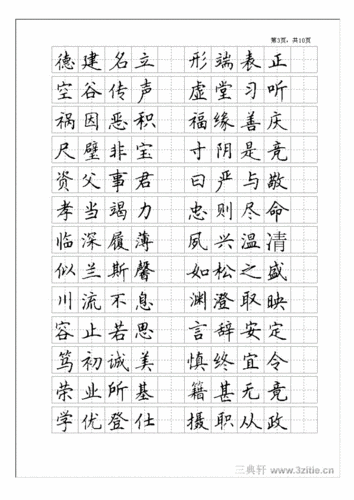 第3页，共10页
德建名立 形端表正
空谷传声 虚堂习听
祸因恶积 福缘善庆
尺璧非宝 寸阴是竞
资父事君 曰严与敬
孝当竭力 忠则尽命
临深履薄 夙兴温凊
似兰斯馨 如松之盛
川流不息 渊澄取映
容止若思 言辞安定
笃初诚美 慎终宜令
荣业所基 籍甚无竟
学优登仕 摄职从政
三典轩 www.3zitie.cn